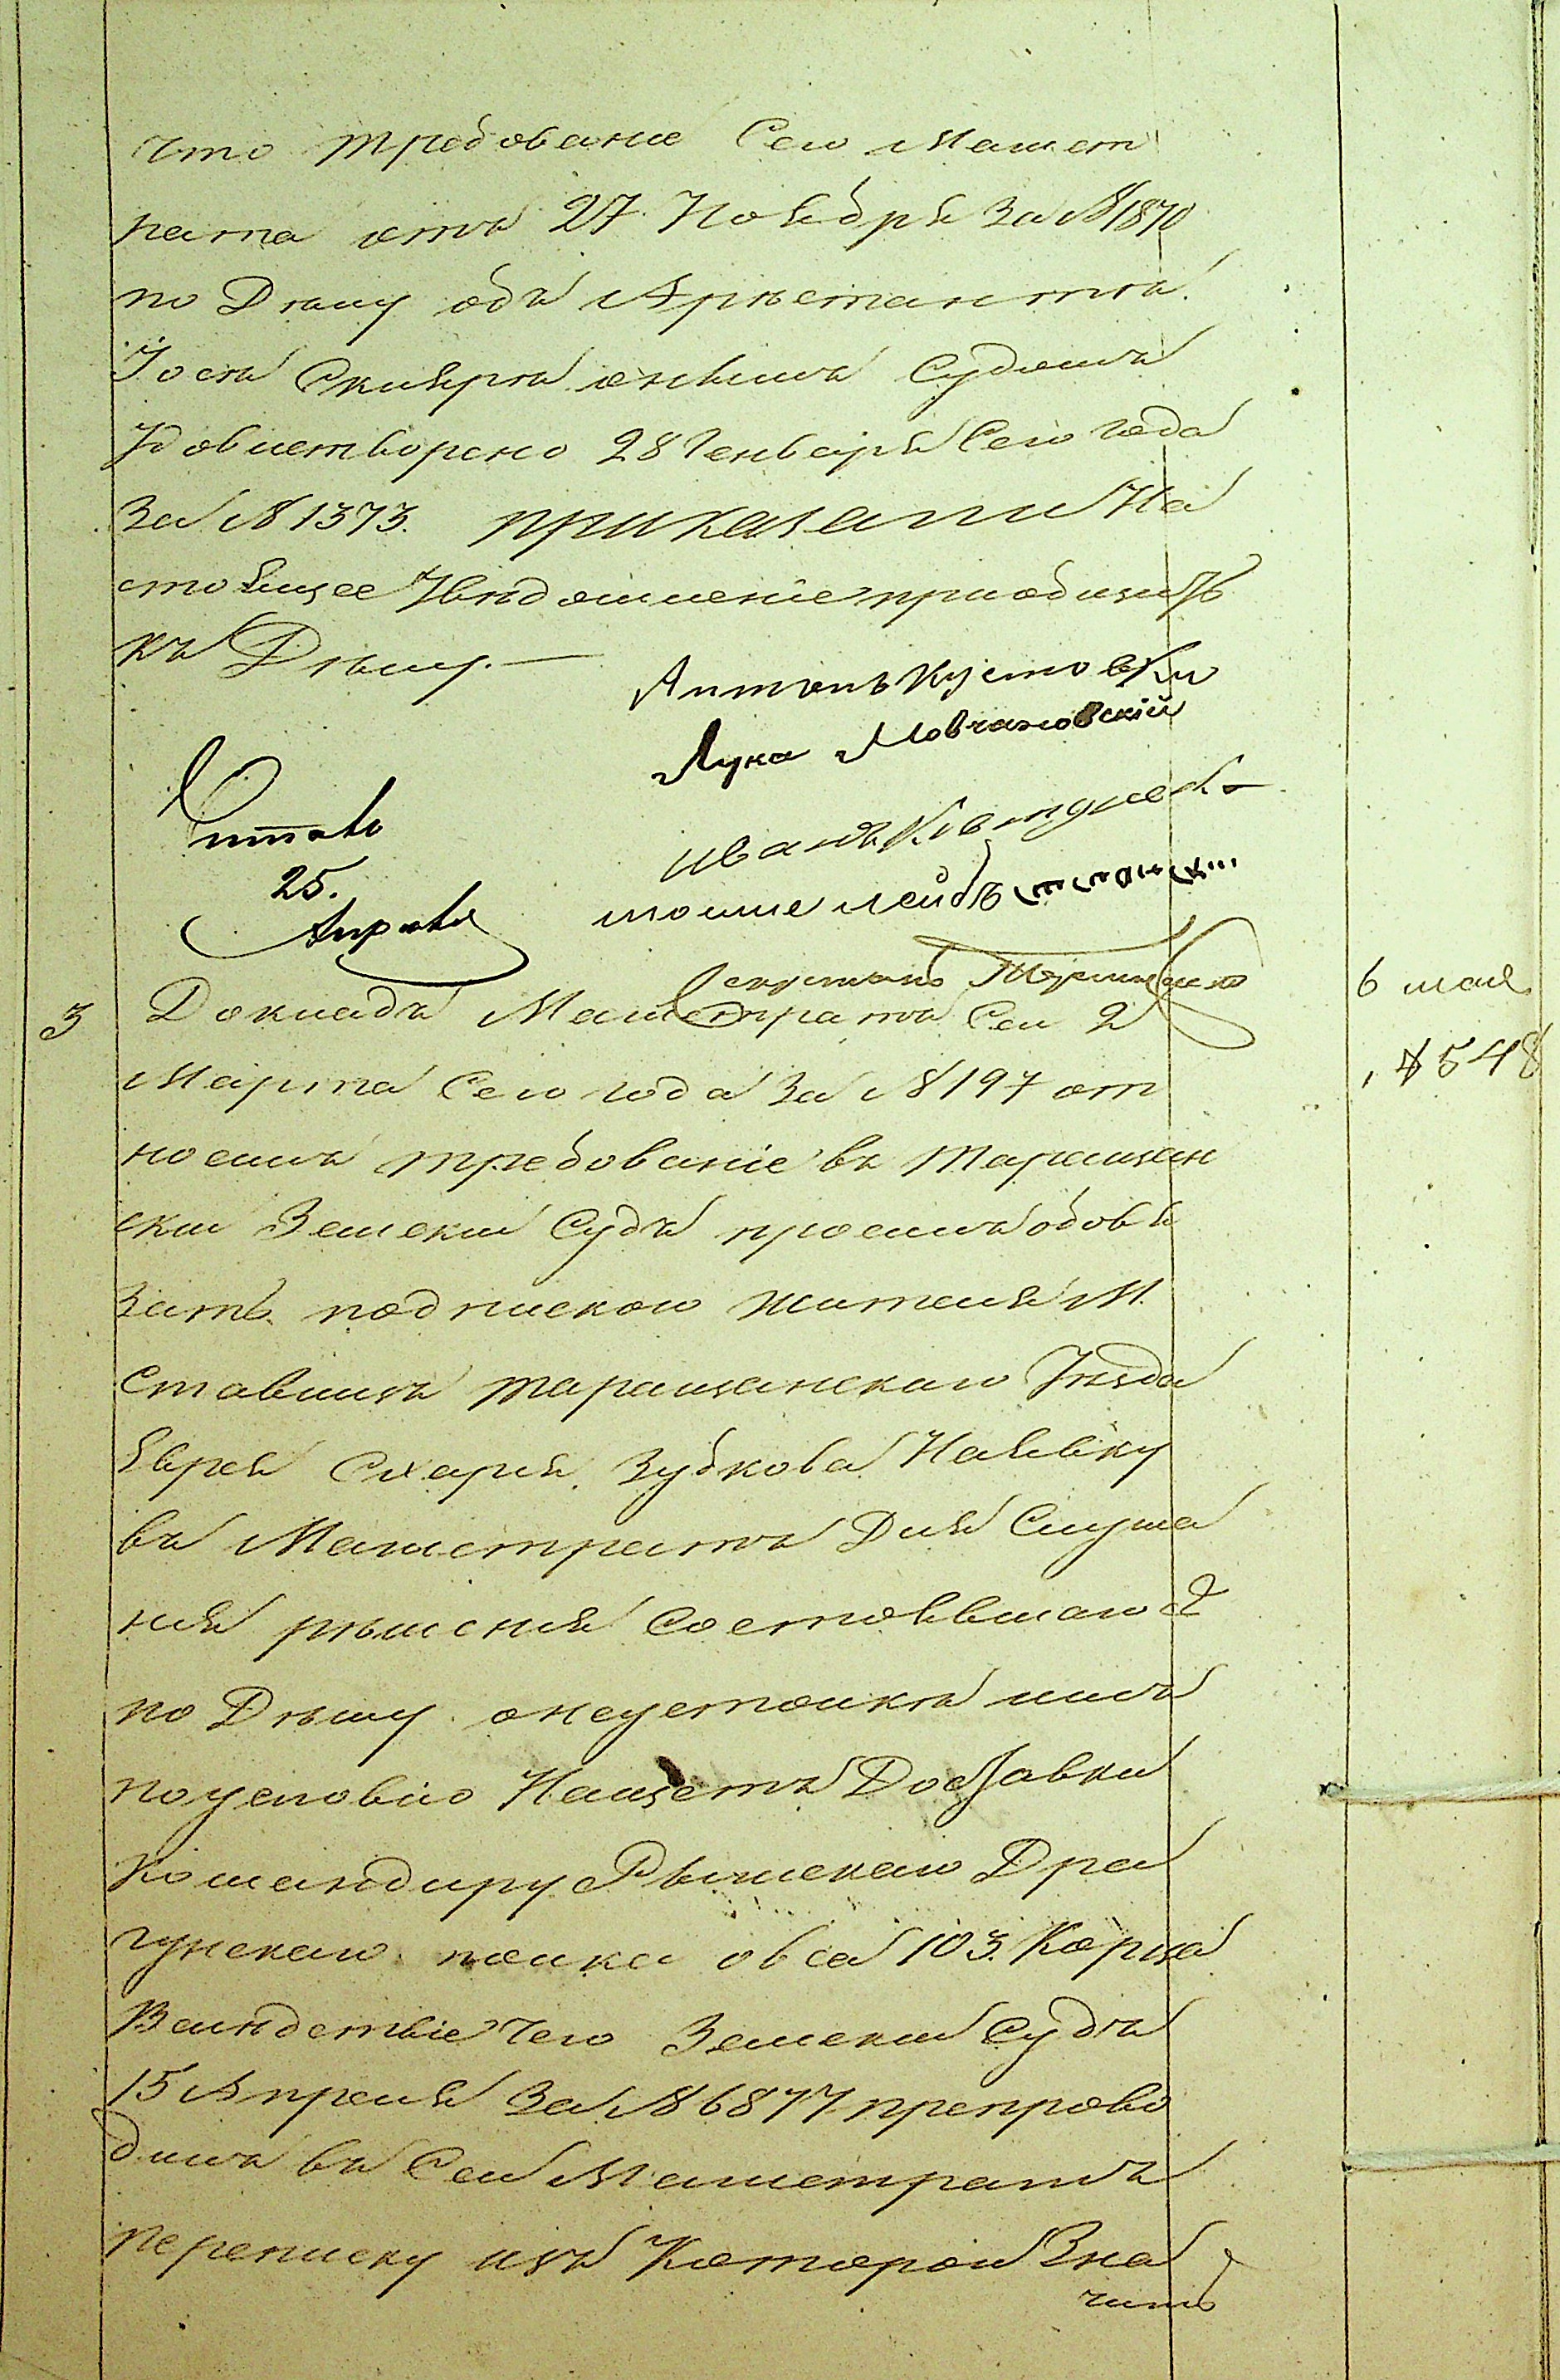 что требование Сего Магист
рата отъ 27. Ноября За № 1870
по Делу объ Арестантѣ
Іосѣ Склярѣ онымъ Судомъ
Удовлетворено 28 Генваря Сего года
За № 1373. приказали На
стоящее Увѣдомленіе приобщить
къ Дѣлу. —
Антонъ
Лука Мовчановскій
Иванъ
мошие лейбъ
Читалъ
25.
Апреля
Секретарь
6 мая
№ 548
3 Докладъ Магистратъ Сей 2
Марта Сего года За № 197 от
ношемъ требованіе въ Таращан
ски Земски Судъ просилъ обовя
зать подпискою Жителя М.
Ставищъ таращанскаго Уѣзда
Еврея Схарія Зубкова На явку
въ Магистратъ Для Слуша
нія рѣшенія Состоявшагося
по Дѣлу о неустойкѣ имъ
по условію На щетъ Доставки
Командиру Рымскаго Дра
гунскаго полка овса 103. Корца
Вслѣдствіе чего Земски Судъ
15 Апреля За № 6877 препрово
дилъ въ Сей Магистратъ
переписку изъ Которой Зна
читъ